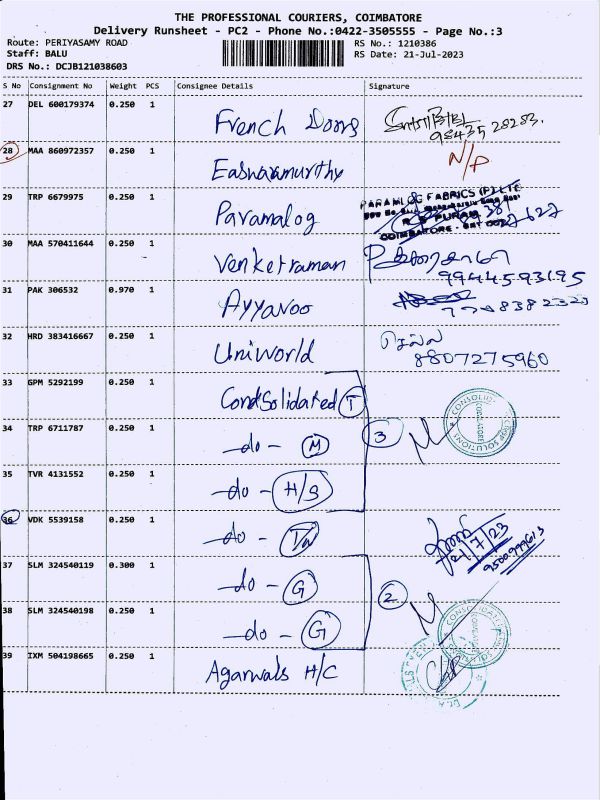 THE PROFESSIONAL COURIERS, COIMBATORE
Delivery Runsheet - PC2 - Phone No.:0422-3505555 - Page No.:3
Route: PERIYASAMY ROAD
Staff: BALU
DRS No.: DCJB121038603
RS No.: 1210386
RS Date: 21-Jul-2023
S No Consignment No Weight PCS Consignee Details Signature
27 DEL 600179374 0.250 1 French Doors
98435 28283.
28 MAA 860972357 0.250 1 Easwaramurthy N/P
29 TRP 6679975 0.250 1 Paramalog
PARAMLOG FABRICS (P) LTD
R S PURAM
COIMBATORE
30 MAA 570411644 0.250 1 Venketraman
9944593195
31 PAK 306532 0.970 1 Ayyavoo
7708382320
32 HRD 383416667 0.250 1 Uniworld செல்வ
8807275960
33 GPM 5292199 0.250 1 Condsolidated T
34 TRP 6711787 0.250 1 -do- M 3
35 TVR 4131552 0.250 1 -do- H/S
36 VDK 5539158 0.250 1 -do-
21/7/23
9500999613
37 SLM 324540119 0.300 1 -do- G
2
38 SLM 324540198 0.250 1 -do- G
39 IXM 504198665 0.250 1 Agarwals H/C